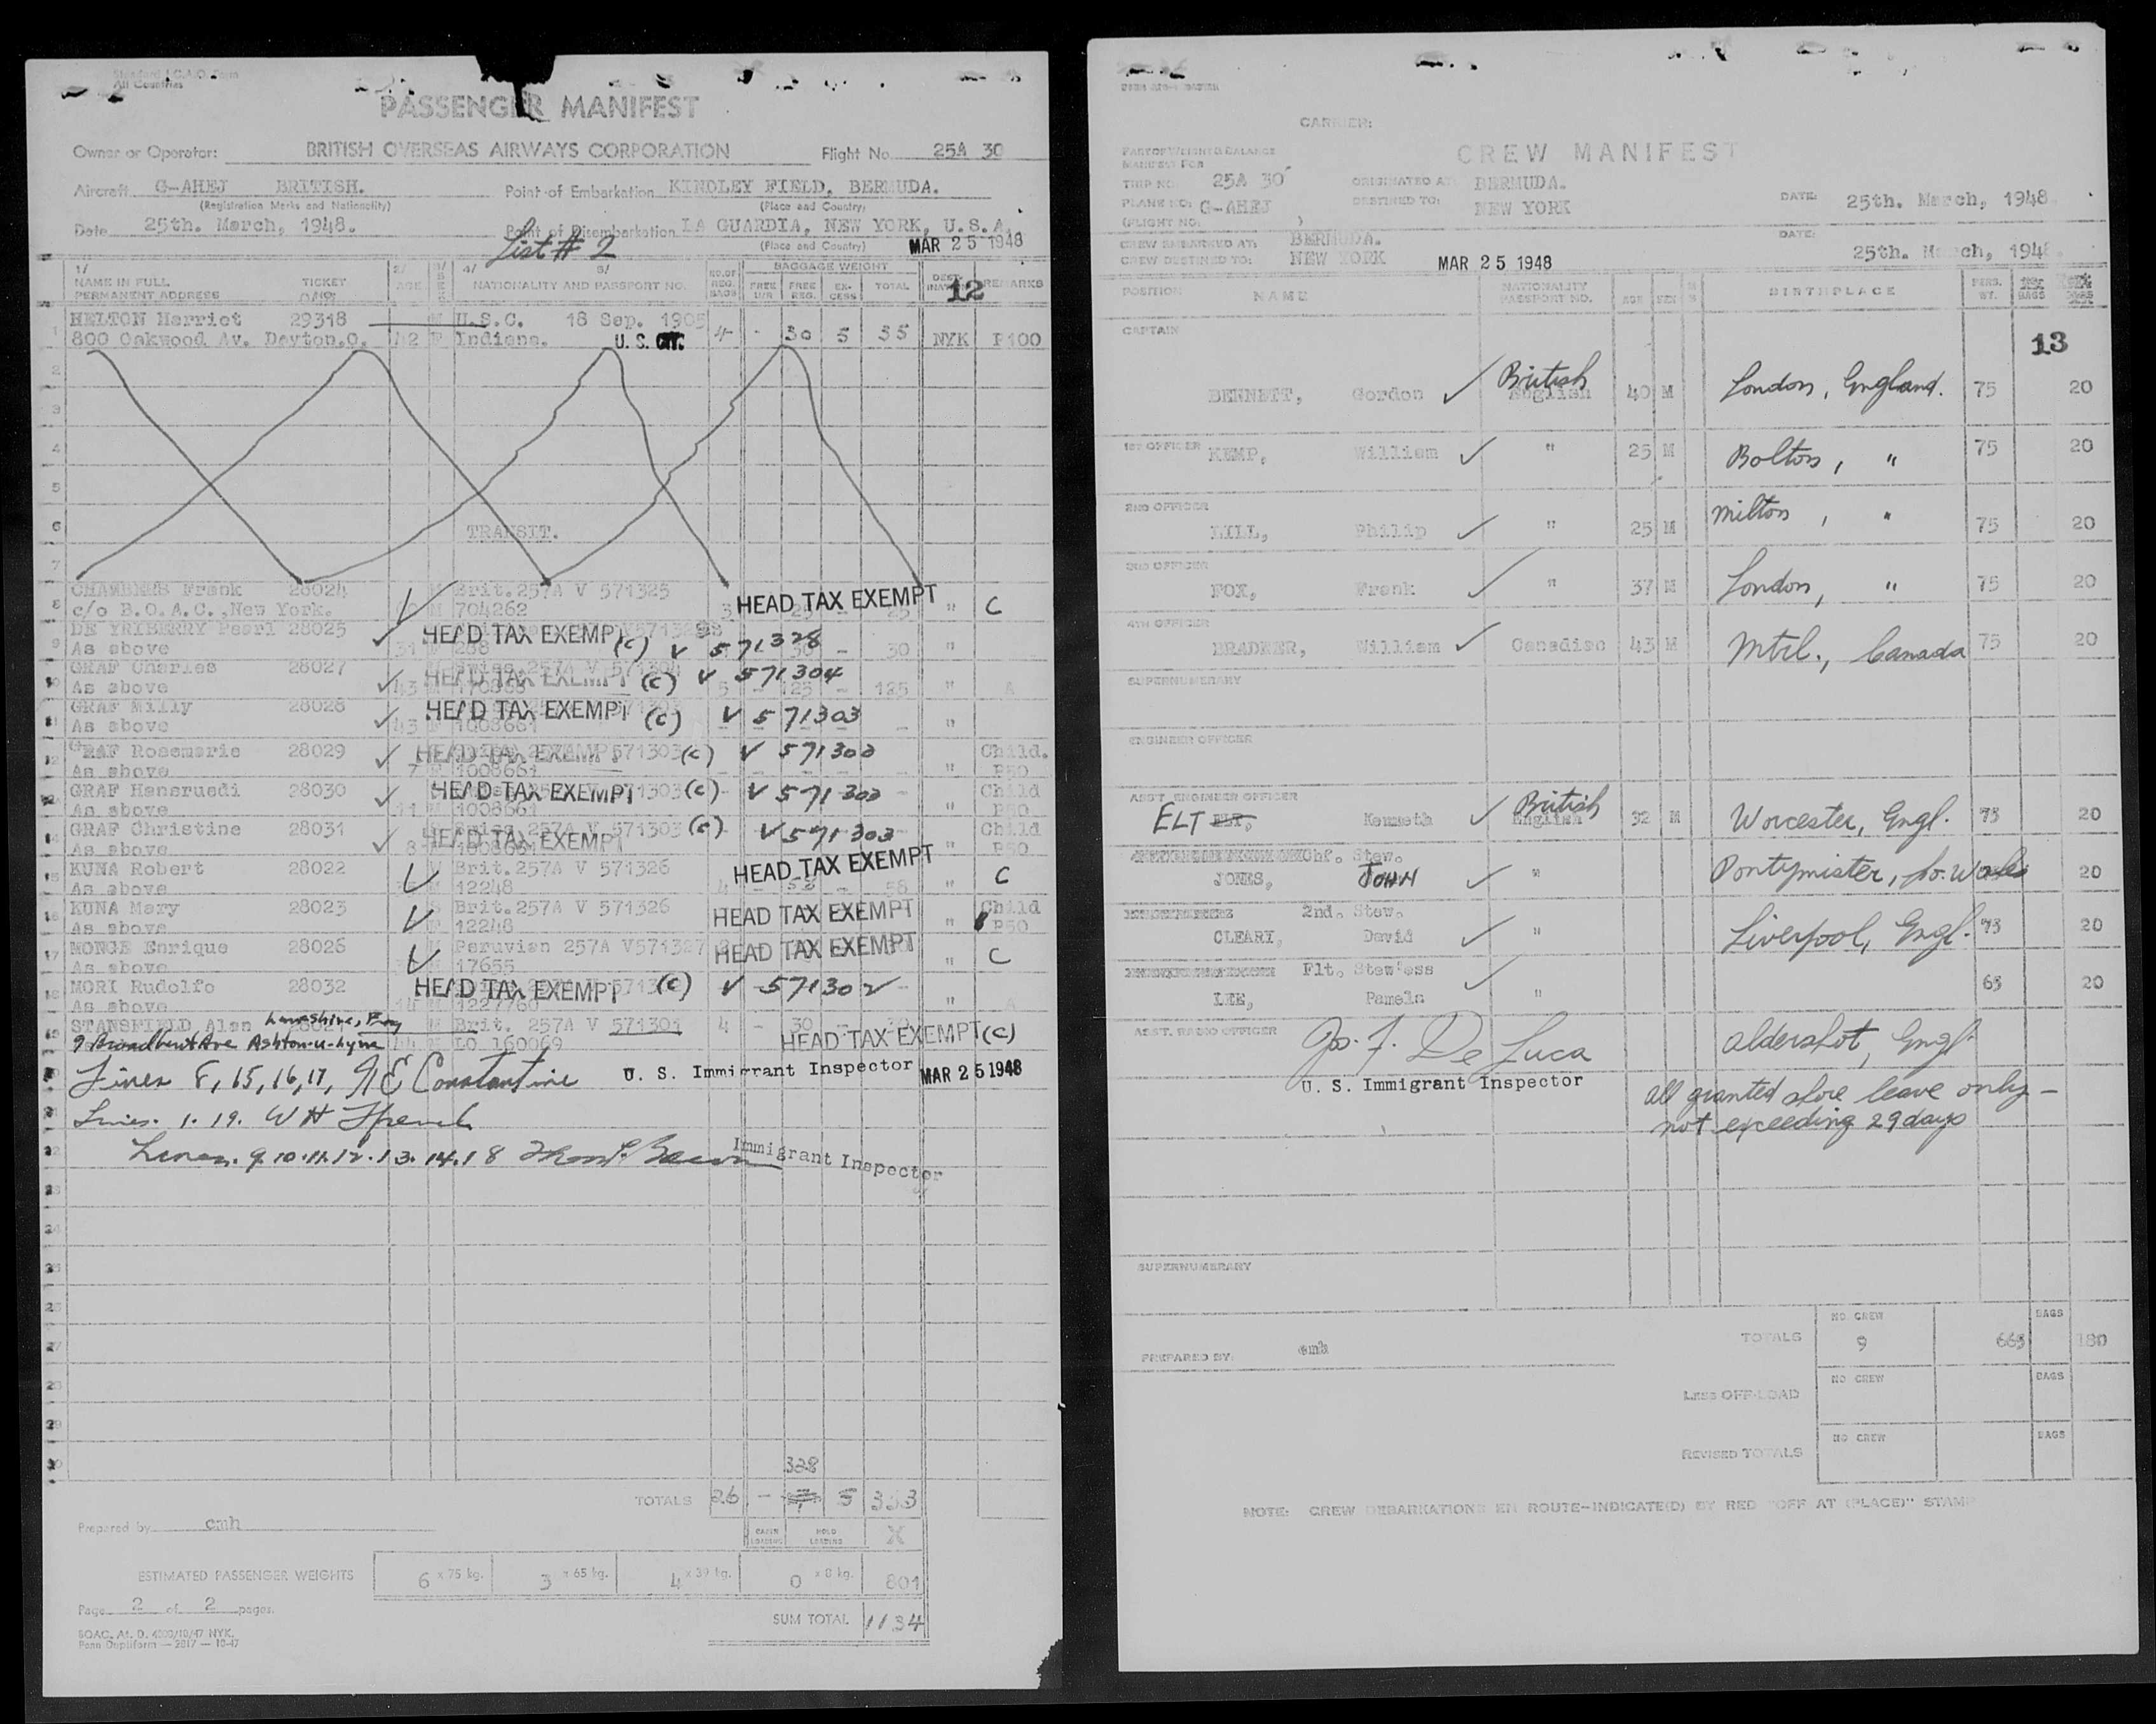 Standard I.C.A.O. Form
All Countries
PASSENGER MANIFEST
Owner or Operator: BRITISH OVERSEAS AIRWAYS CORPORATION Flight No. 25A 30
Aircraft G-AHEJ BRITISH. Point of Embarkation KINDLEY FIELD, BERMUDA.
(Registration Marks and Nationality) (Place and Country)
Date 25th. March, 1948. Point of Disembarkation LA GUARDIA, NEW YORK, U.S.A.
List # 2 (Place and Country) MAR 25 1948
1/ NAME IN FULL PERMANENT ADDRESS TICKET 2/ AGE 3/ 4/ 5/ NATIONALITY AND PASSPORT NO. NO. OF REG. BAGS BAGGAGE WEIGHT FREE FREE REG. EXCESS TOTAL DESTINATION REMARKS
12
1 HELTON Harriet 29318 U.S.C. 18 Sep. 1905
800 Oakwood Av. Dayton.O. 42 F Indiana. U.S. CIT. 4 - 30 5 35 NYK P100
2
3
4
5
6 TRANSIT.
7
8 CHAMBERS Frank 28024 M Brit.257A V 571325
c/o B.O.A.C.,New York. M 704262 3 HEAD TAX EXEMPT 25 " C
9 DE YRIBERRY Pearl 28025 HEAD TAX EXEMPT (c) V 571328
As above 31 F 288 30 - 30 "
10 GRAF Charles 28027 Swiss 257A V 571304 HEAD TAX EXEMPT (c) V 571304
As above 43 M 170888 5 - 125 - 125 " A
11 GRAF Milly 28028 HEAD TAX EXEMPT (c) V 571303
As above 43 F 1008661 "
12 GRAF Rosemarie 28029 HEAD TAX EXEMPT 571303 (c) V 571303 Child.
As above 7 F 1008661 " P50
13 GRAF Hansruedi 28030 HEAD TAX EXEMPT 1303 (c) V 571303 Child
As above 11 M 1008661 " P50
14 GRAF Christine 28031 Swiss 257A V 571303 (c) V 571303 Child
As above 8 HEAD TAX EXEMPT " P50
15 KUNA Robert 28022 M Brit.257A V 571326 HEAD TAX EXEMPT
As above M 12248 4 - 58 - 58 " C
16 KUNA Mary 28023 S Brit.257A V 571326 HEAD TAX EXEMPT Child
As above F 12248 " P50
17 MONGE Enrique 28026 M Peruvian 257A V571327 HEAD TAX EXEMPT
As above 17655 " C
18 MORI Rudolfo 28032 HEAD TAX EXEMPT (c) V 571302
As above 1227760 " A
19 STANSFIELD Alan Lancashire, Eng M Brit. 257A V 571301 4 - 30 -
9 Broadbent Ave Ashton-u-Lyne 44 M LO 160069 HEAD TAX EXEMPT (c)
Lines 8, 15, 16, 17, N E Constantine U. S. Immigrant Inspector MAR 25 1948
Lines. 1. 19. W H French
Lines. 9. 10. 11. 12. 13. 14. 18 Immigrant Inspector
23
24
25
26
27
28
29
30 328
TOTALS 26 - 5 333
Prepared by emh CABIN LOADING HOLD LOADING X
ESTIMATED PASSENGER WEIGHTS 6 x 75 kg. 3 x 65 kg. 4 x 39 kg. 0 x 8 kg. 801
Page 2 of 2 pages.
SUM TOTAL 1134
BOAC. At. D. 4000/10/47 NYK.
Penn Dupliform — 2817 — 10-47
CARRIER:
PART OF WEIGHT & BALANCE
MANIFEST FOR
CREW MANIFEST
TRIP NO: 25A 30 ORIGINATED AT: BERMUDA. DATE: 25th. March, 1948.
PLANE NO: G-AHEJ DESTINED TO: NEW YORK
(FLIGHT NO: )
CREW EMBARKED AT: BERMUDA. DATE:
CREW DESTINED TO: NEW YORK MAR 25 1948 25th. March, 1948.
POSITION NAME NATIONALITY PASSPORT NO. AGE SEX BIRTHPLACE PERS. WT. BAGS
CAPTAIN 13
BENNETT, Gordon British English 40 M London, England. 75 20
1ST OFFICER KEMP, William " 25 M Bolton, " 75 20
2ND OFFICER
LILL, Philip " 25 M Milton, " 75 20
3RD OFFICER
FOX, Frank " 37 M London, " 75 20
4TH OFFICER
BRADEER, William Canadian 43 M Mtrl., Canada 75 20
SUPERNUMERARY
ENGINEER OFFICER
ASS'T ENGINEER OFFICER
ELT Kenneth British English 32 M Worcester, Engl. 75 20
Chf. Stew.
JONES, JOHN " Pontymister, So. Wales 20
2nd. Stew.
CLEARY, David " Liverpool, Engl. 75 20
Flt. Stew'ess
LEE, Pamela " 65 20
ASST. RADIO OFFICER Jos. F. De Luca Aldershot, Engl.
U. S. Immigrant Inspector
All granted shore leave only —
not exceeding 29 days
SUPERNUMERARY
PREPARED BY: emh TOTALS NO CREW 9 665 BAGS 180
LESS OFF-LOAD NO CREW BAGS
REVISED TOTALS NO CREW BAGS
NOTE: CREW DEBARKATIONS EN ROUTE-INDICATE(D) BY RED "OFF AT (PLACE)" STAMP